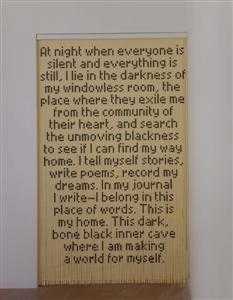 At night when everyone is
silent and everything is
still, I lie in the darkness of
my windowless room, the
place where they exile me
from the community of
their heart, and search
the unmoving blackness
to see if I can find my way
home. I tell myself stories,
write poems, record my
dreams. In my journal
I write—I belong in this
place of words. This is
my home. This dark,
bone black inner cave
where I am making
a world for myself.